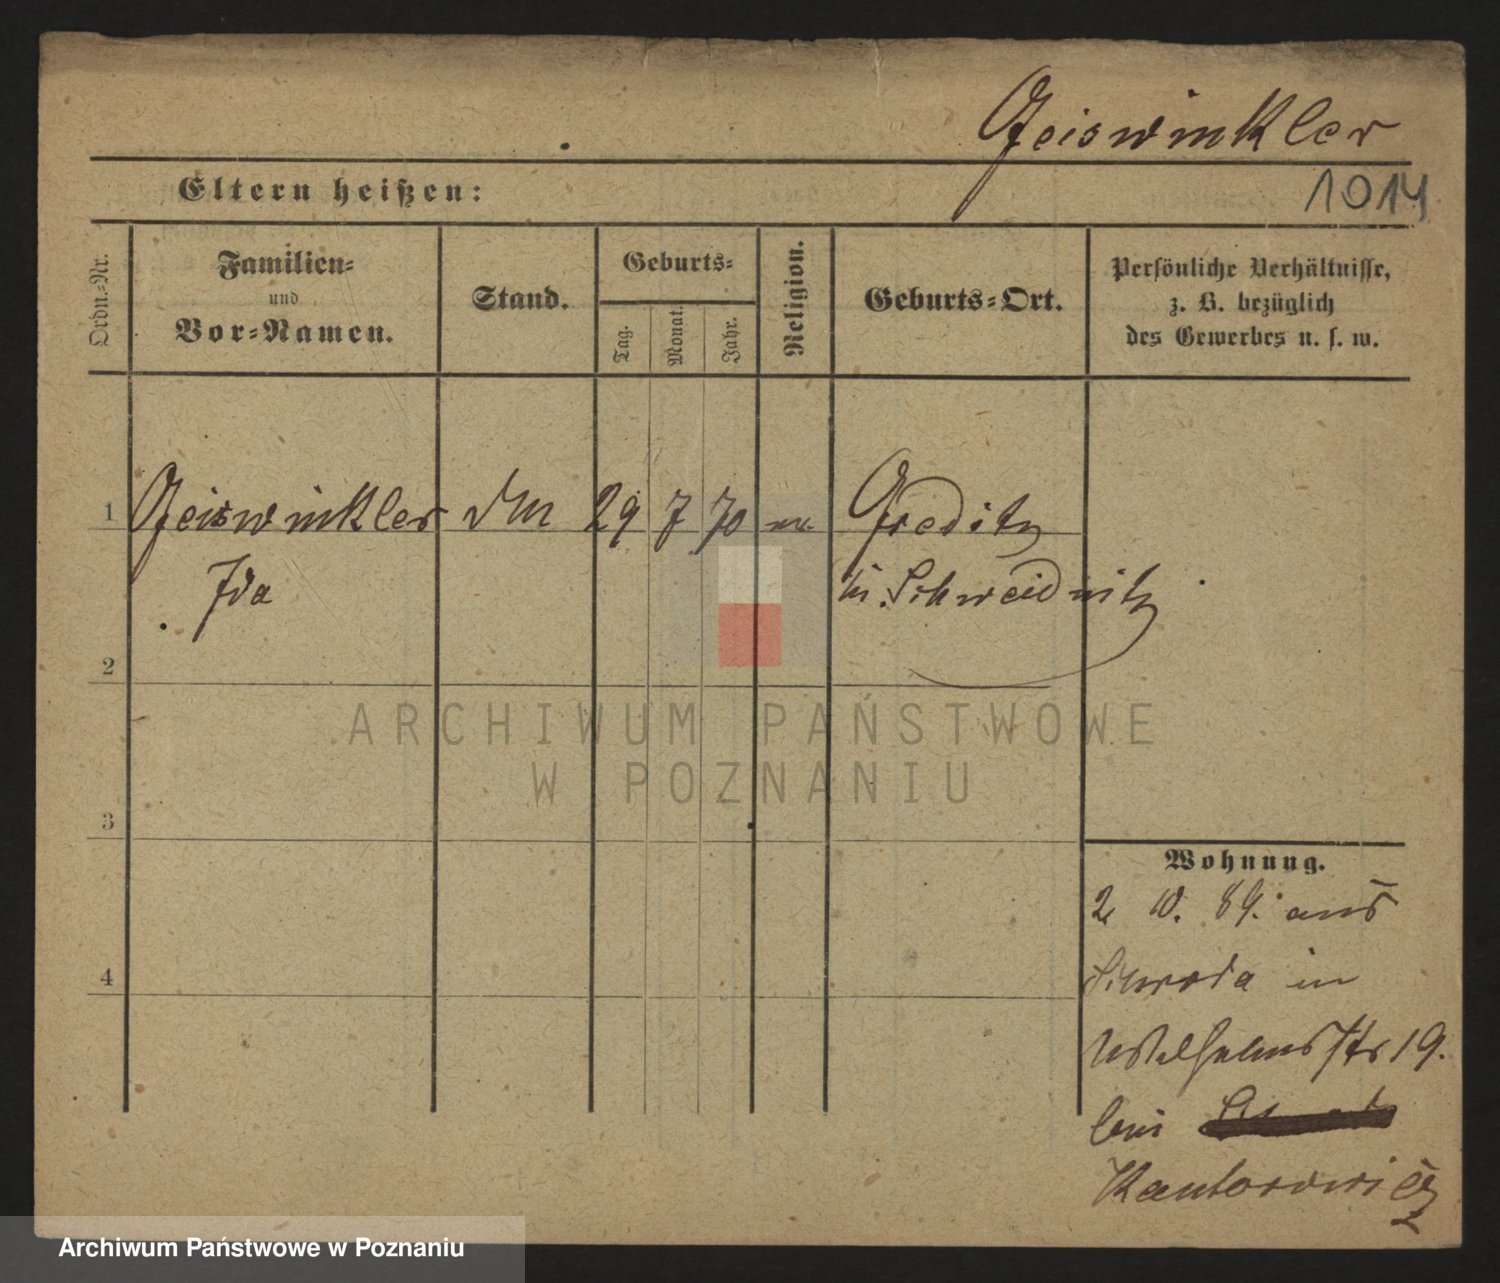 Geiswinkler
1014
Eltern heißen:
Ordn.-Nr.
Familien-
und
Vor-Namen.
Stand.
Geburts-
Tag.
Monat.
Jahr.
Religion.
Geburts-Ort.
Persönliche Verhältnisse,
z. B. bezüglich
des Gewerbes u. s. w.
1 Geiswinkler 29 7 70 Greditz
Ida Schweidnitz
2
3
4
Wohnung.
2 10. 89. aus
Schroda in
Wilhelmsstr 19.
bei
Kantorowicz
ARCHIWUM PAŃSTWOWE
W POZNANIU
Archiwum Państwowe w Poznaniu